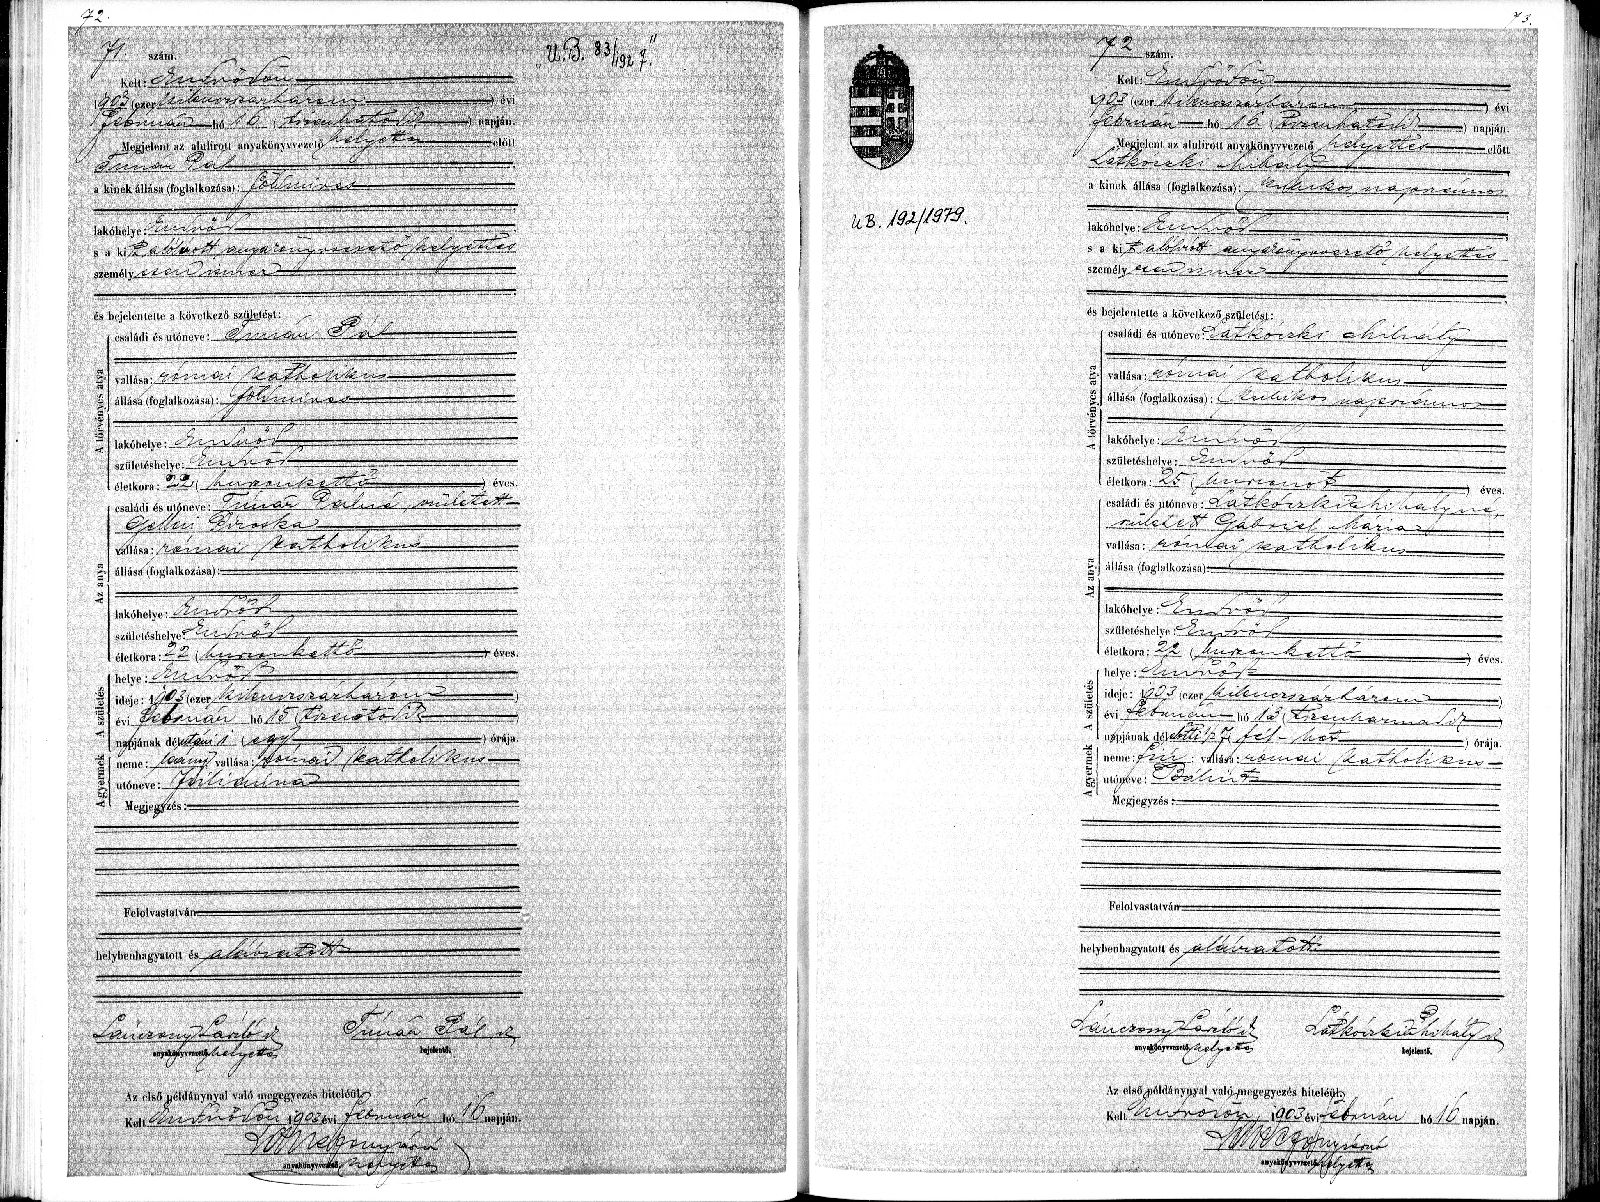 72.
71 szám.
„U.B. 83/1927."
Kelt: Endrődön
1903 (ezerkilencszázhárom) évi
február hó 16 (tizenhatodik) napján.
Megjelent az alulirott anyakönyvvezető helyettes előtt
Timár Pál
a kinek állása (foglalkozása): földmives
lakóhelye: Endrőd
s a kit alólirott anyakönyvvezető helyettes
személyesen ismer
és bejelentette a következő születést:
A törvényes atya
családi és utóneve: Timár Pál
vallása: római katholikus
állása (foglalkozása): földmives
lakóhelye: Endrőd
születéshelye: Endrőd
életkora: 22 (huszonkettő) éves.
Az anya
családi és utóneve: Timár Pálné született
Gellai Piroska
vallása: római katholikus
állása (foglalkozása):
lakóhelye: Endrőd
születéshelye: Endrőd
életkora: 22 (huszonkettő) éves.
A születés
helye: Endrőd
ideje: 1903 (ezerkilencszázhárom)
évi február hó 15 (tizenötödik)
napjának délutáni 1 (egy) órája.
A gyermek
neme: leány vallása: római katholikus
utóneve:
Megjegyzés:
Felolvastatván
helybenhagyatott és aláiratott
László sk Timár Pál sk
anyakönyvvezető helyettes bejelentő.
Az első példánynyal való megegyezés hiteléül.
Kelt Endrődön, 1903 évi február hó 16 napján.
anyakönyvvezető helyettes
73.
72 szám.
U B. 192/1979.
Kelt: Endrődön
1903 (ezerkilencszázhárom) évi
február hó 16 (tizenhatodik) napján.
Megjelent az alulirott anyakönyvvezető helyettes előtt
Latkóczki Mihály
a kinek állása (foglalkozása): kubikos napszámos
lakóhelye: Endrőd
s a kit alólirott anyakönyvvezető helyettes
személyesen ismer
és bejelentette a következő születést:
A törvényes atya
családi és utóneve: Latkóczki Mihály
vallása: római katholikus
állása (foglalkozása): kubikos napszámos
lakóhelye: Endrőd
születéshelye: Endrőd
életkora: 25 (huszonöt) éves.
Az anya
családi és utóneve: Latkóczki Mihályné,
született Gábriel Mária
vallása: római katholikus
állása (foglalkozása):
lakóhelye: Endrőd
születéshelye: Endrőd
életkora: 22 (huszonkettő) éves.
A születés
helye: Endrőd
ideje: 1903 (ezerkilencszázhárom)
évi február hó 13 (tizenharmadik)
napjának délelőtti 1/2 7 (fél-hét) órája.
A gyermek
neme: fiú vallása: római katholikus
utóneve: Bálint
Megjegyzés:
Felolvastatván
helybenhagyatott és aláiratott
László sk Latkóczki Mihály sk
anyakönyvvezető helyettes bejelentő.
Az első példánynyal való megegyezés hiteléül.
Kelt Endrődön, 1903 évi február hó 16 napján.
anyakönyvvezető helyettes